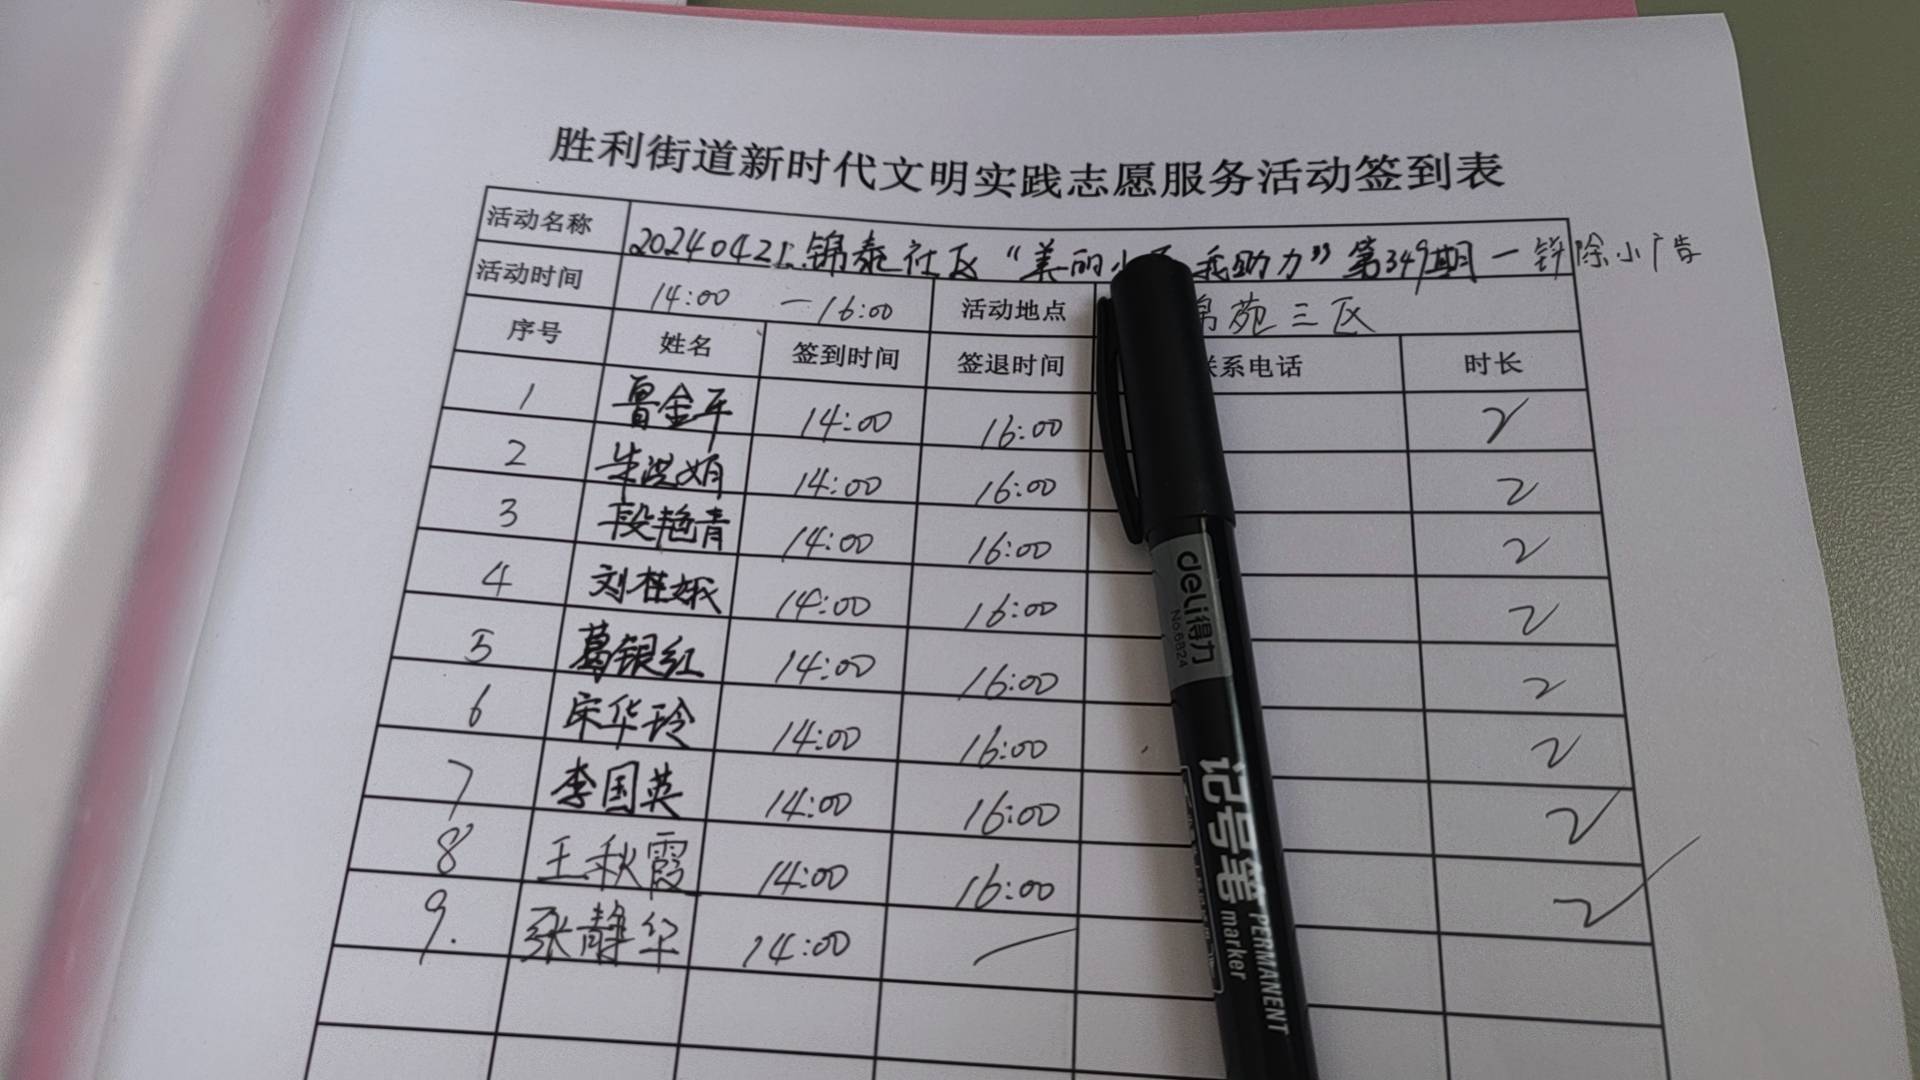 胜利街道新时代文明实践志愿服务活动签到表
活动名称 2024042 锦泰社区“美丽小 我助力”第349期一 除小广告
活动时间 14:00 一16:00 活动地点 苑三区
序号 姓名 签到时间 签退时间 系电话 时长
1 鲁金平 14:00 16:00 2
2 朱洪娟 14:00 16:00 2
3 段艳青 14:00 16:00 2
4 刘桂娥 14:00 16:00 2
5 葛银红 14:00 16:00 2
6 宋华玲 14:00 16:00 2
7 李国英 14:00 16:00 2
8 王秋霞 14:00 16:00 2
9. 张静华 14:00
deli得力
No.6824
记号笔
PERMANENT
marker